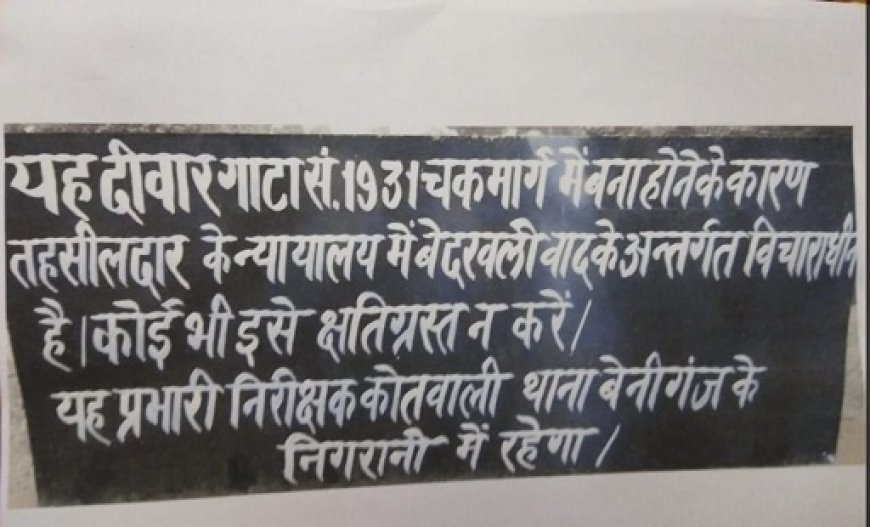 यह दीवार गाटा सं. 1931 चकमार्ग में बना होने के कारण
तहसीलदार के न्यायालय में बेदखली वाद के अन्तर्गत विचाराधीन
है। कोई भी इसे क्षतिग्रस्त न करें/
यह प्रभारी निरीक्षक कोतवाली थाना बेनीगंज के
निगरानी में रहेगा /